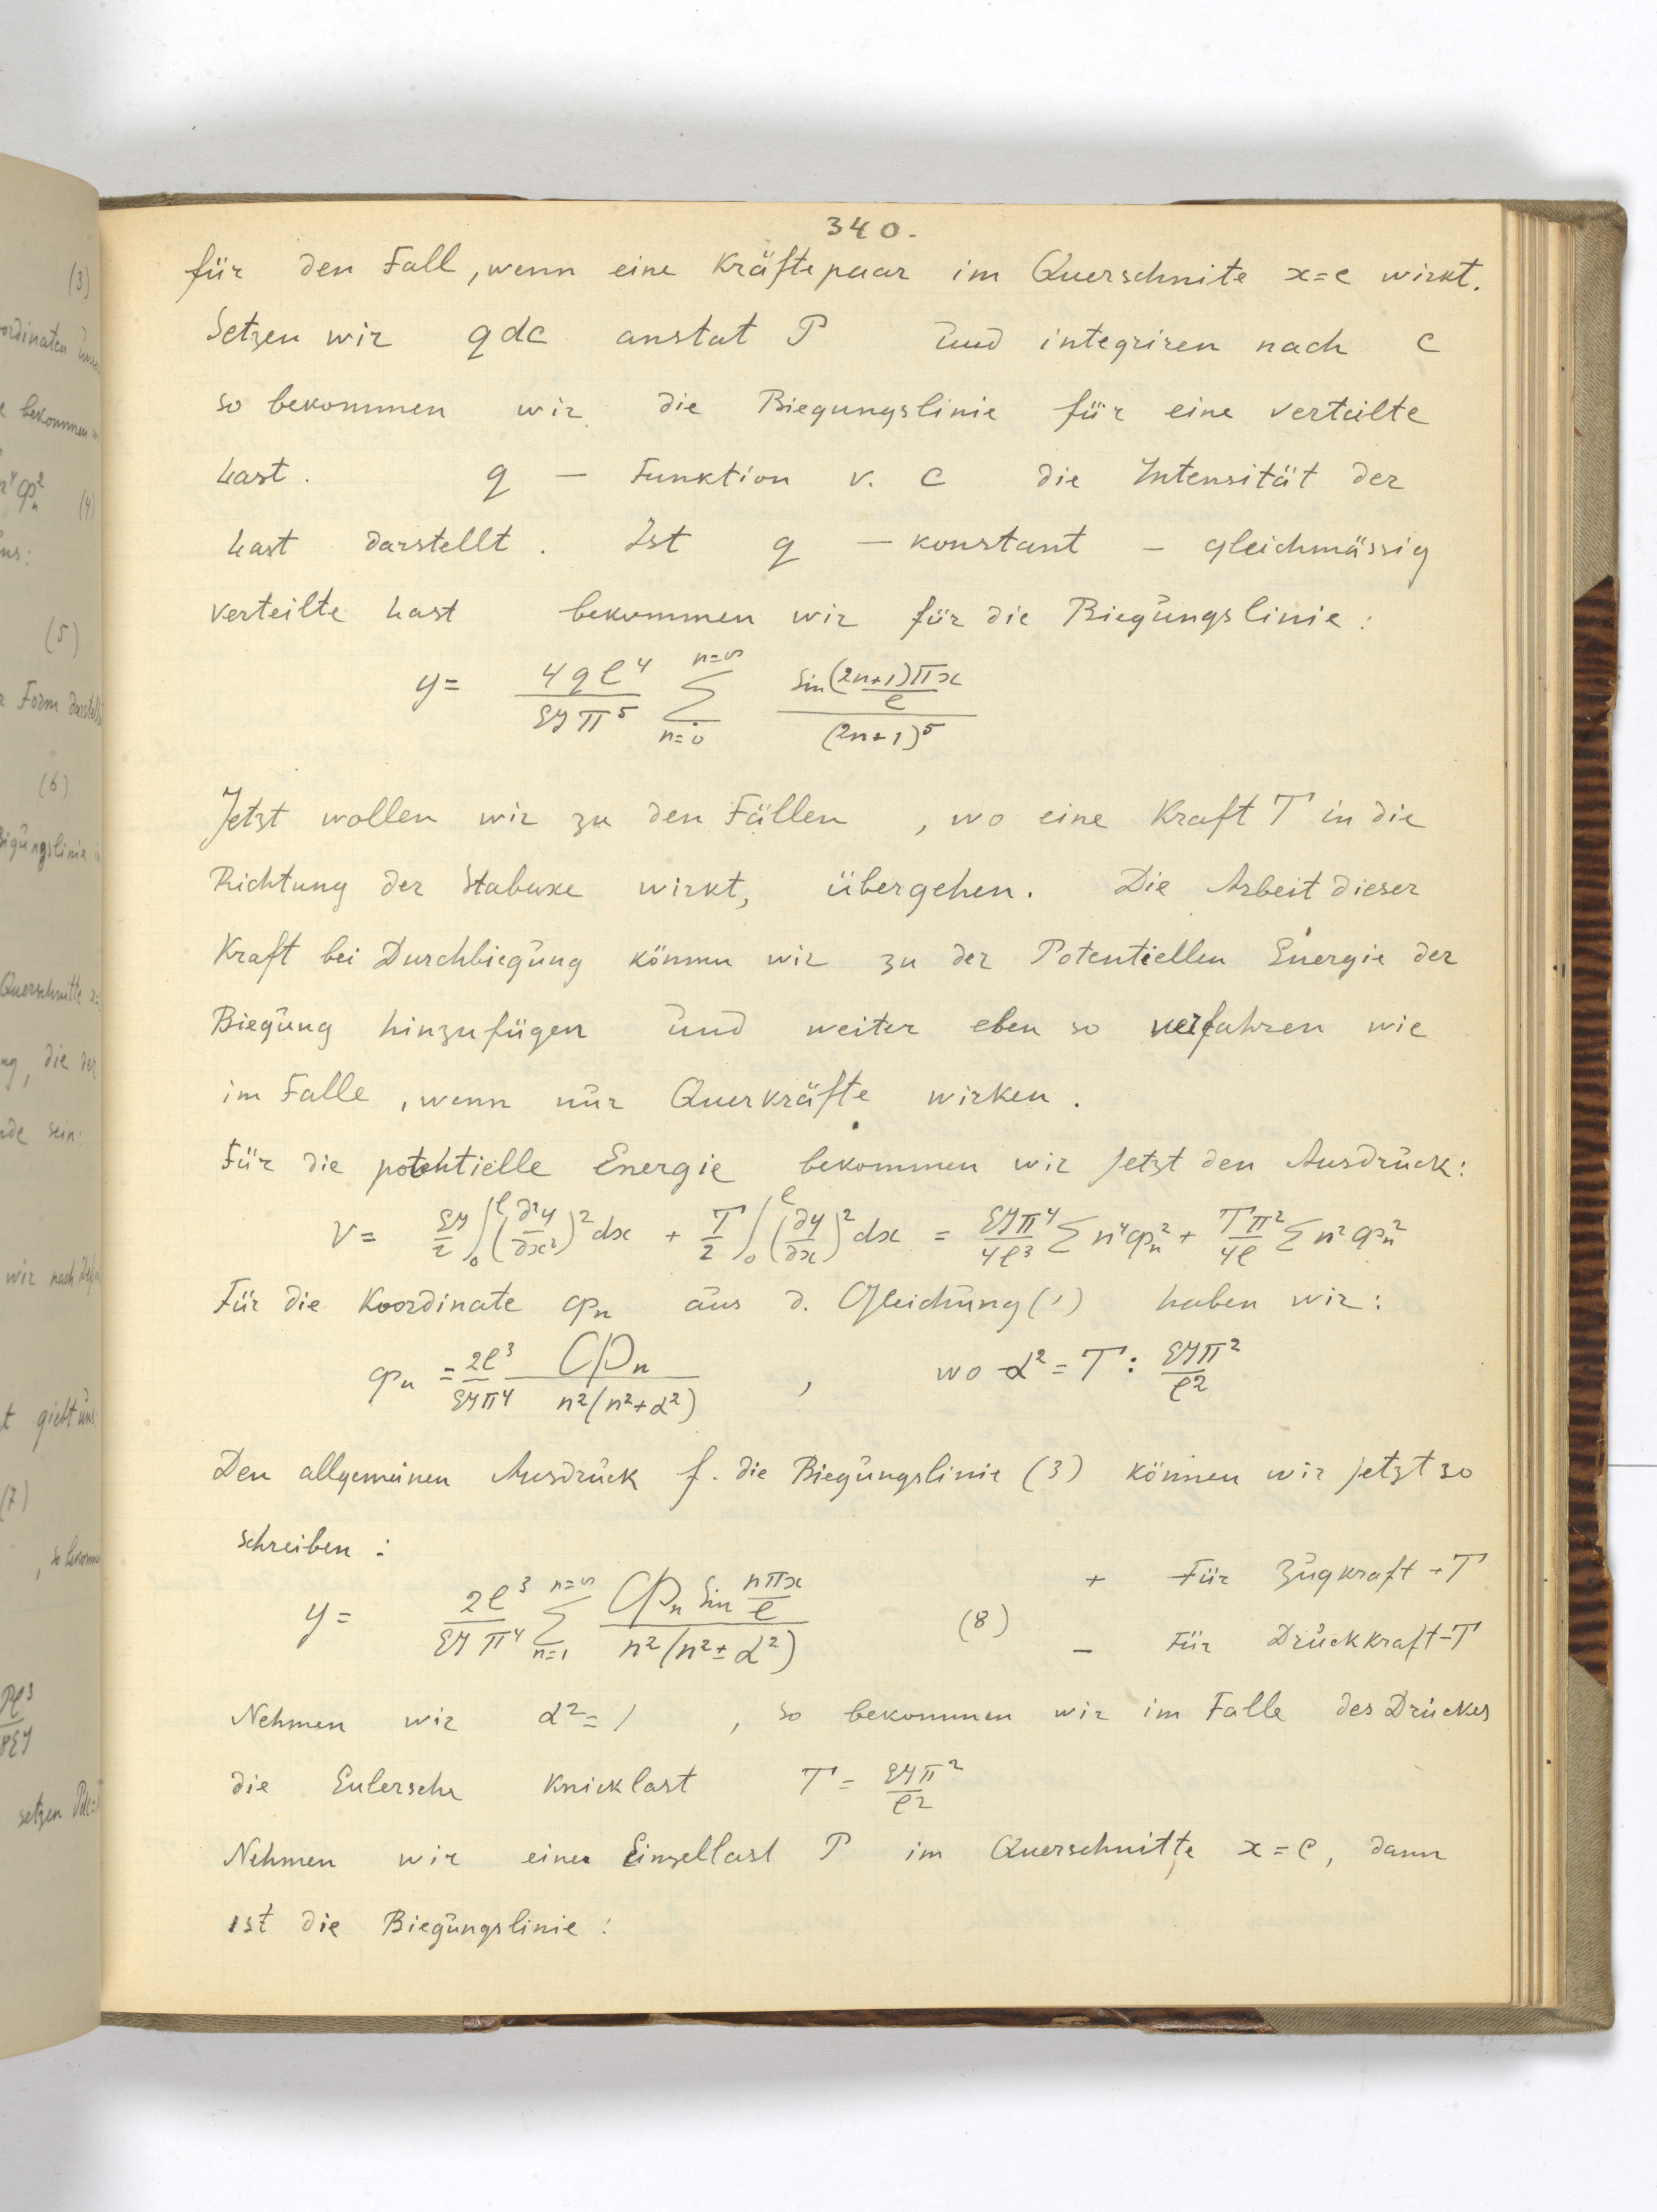 340.
für den Fall, wenn eine Kräftepaar im Querschnite x=c wirkt.
Setzen wir qdc anstat P und integriren nach c
so bekommen wir die Biegungslinie für eine verteilte
Last. q — Funktion v. c die Intensität der
Last darstellt. Ist q — konstant — gleichmässig
verteilte Last bekommen wir für die Biegungslinie:
y = \frac{4ql^4}{EJπ^5} \sum_{n=0}^{n=∞} \frac{sin \frac{(2n+1)πx}{l}}{(2n+1)^5}
Jetzt wollen wir zu den Fällen, wo eine Kraft T in die
Richtung der Stabaxe wirkt, übergehen. Die Arbeit dieser
Kraft bei Durchbiegung können wir zu der Potentiellen Energie der
Biegung hinzufügen und weiter eben so verfahren wie
im Falle, wenn nur Querkräfte wirken.
Für die potentielle Energie bekommen wir jetzt den Ausdruck:
V = \frac{EJ}{2} \int_0^l (\frac{∂^2y}{∂x^2})^2 dx + \frac{T}{2} \int_0^l (\frac{∂y}{∂x})^2 dx = \frac{EJπ^4}{4l^3} Σ n^4 φ_n^2 + \frac{Tπ^2}{4l} Σ n^2 φ_n^2
Für die Koordinate φ_n aus d. Gleichung (1) haben wir:
φ_n = \frac{2l^3}{EJπ^4} \frac{Φ_n}{n^2(n^2+α^2)}, wo α^2 = T : \frac{EJπ^2}{l^2}
Den allgemeinen Ausdruck f. die Biegungslinie (3) können wir jetzt so
schreiben:
+ Für Zugkraft +T
y = \frac{2l^3}{EJπ^4} \sum_{n=1}^{n=∞} \frac{Φ_n sin \frac{nπx}{l}}{n^2(n^2±α^2)} (8)
– Für Druckkraft –T
Nehmen wir α^2 = 1, so bekommen wir im Falle des Druckes
die Eulersche Knicklast T = \frac{EJπ^2}{l^2}
Nehmen wir eine Einzellast P im Querschnitte x=c, dann
ist die Biegungslinie: